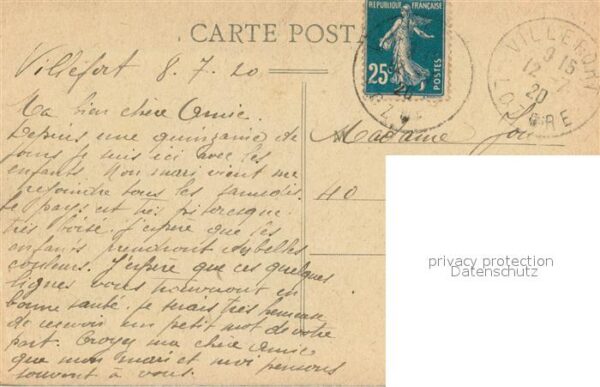 CARTE POSTA
RÉPUBLIQUE FRANÇAISE
25c
POSTES
VILLEFORT
9 15
12
20
LOZÈRE
20
Villefort 8.7.20
Ma bien chère Amie.
Depuis une quinzaine de
jours je suis ici avec les
enfants. Mon mari vient me
rejoindre tous les samedis.
Le pays est très pitoresque
très boisé. J'espère que les
enfants prendront de belles
couleurs. J'espère que ces quelques
lignes vous trouveront en
bonne santé. Je serais très heureuse
de recevoir un petit mot de votre
part. Croyez ma chère Amie
que mon mari et moi pensons
souvent à vous.
Madame
40
privacy protection
Datenschutz